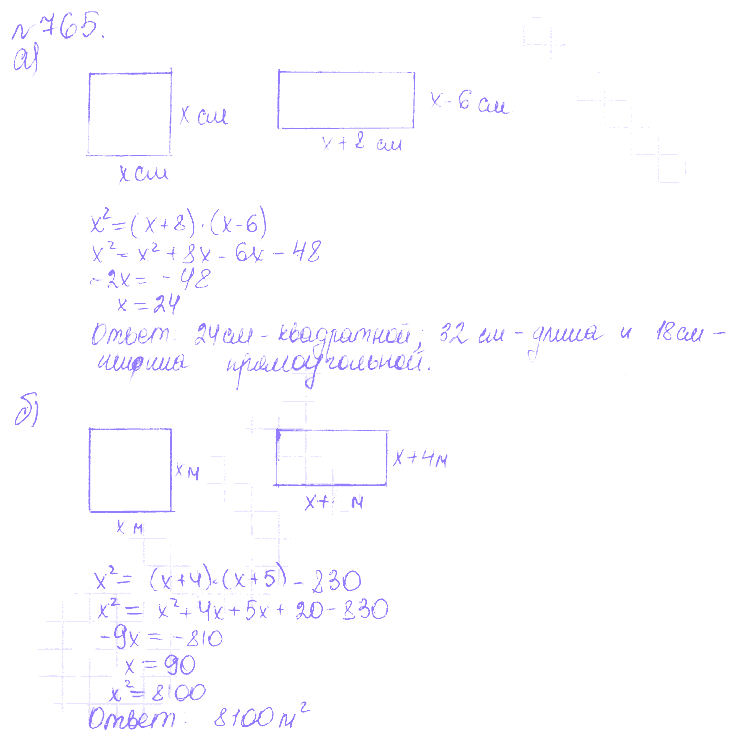 №765.
а)
x см
x-6 см
x+8 см
x см
x²=(x+8)·(x-6)
x²=x²+8x-6x-48
-2x=-48
x=24
Ответ. 24см-квадратной; 32 см-длина и 18см-
ширина прямоугольной.
б)
x м
x+4м
x+ м
x м
x²= (x+4)·(x+5)-830
x²= x²+4x+5x+20-830
-9x=-810
x=90
x²=8100
Ответ. 8100м²